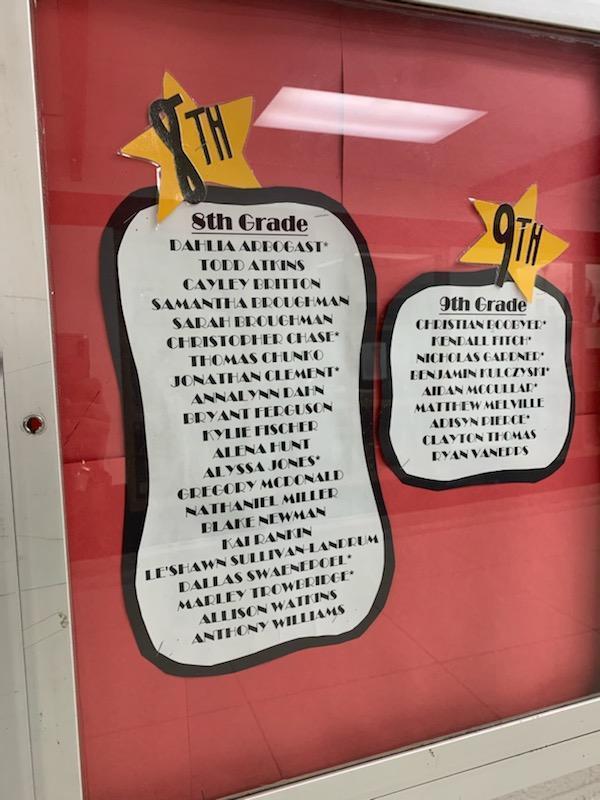 8TH
8th Grade
DAHLIA ARBOGAST*
TODD ATKINS
CAYLEY BRITTON
SAMANTHA BROUGHMAN
SARAH BROUGHMAN
CHRISTOPHER CHASE*
THOMAS CHUNKO
JONATHAN CLEMENT*
ANNALYNN DAHN
BRYANT FERGUSON
KYLIE FISCHER
ALENA HUNT
ALYSSA JONES*
GREGORY MCDONALD
NATHANIEL MILLER
BLAKE NEWMAN
KAI RANKIN
LE'SHAWN SULLIVAN-LANDRUM
DALLAS SWAENEPOEL*
MARLEY TROWBRIDGE*
ALLISON WATKINS
ANTHONY WILLIAMS
9TH
9th Grade
CHRISTIAN BOOBYER*
KENDALL FITCH*
NICHOLAS GARDNER*
BENJAMIN KULCZYSKI*
AIDAN MCCULLAR*
MATTHEW MELVILLE
ADISYN PIERCE*
CLAYTON THOMAS
RYAN VANEPPS